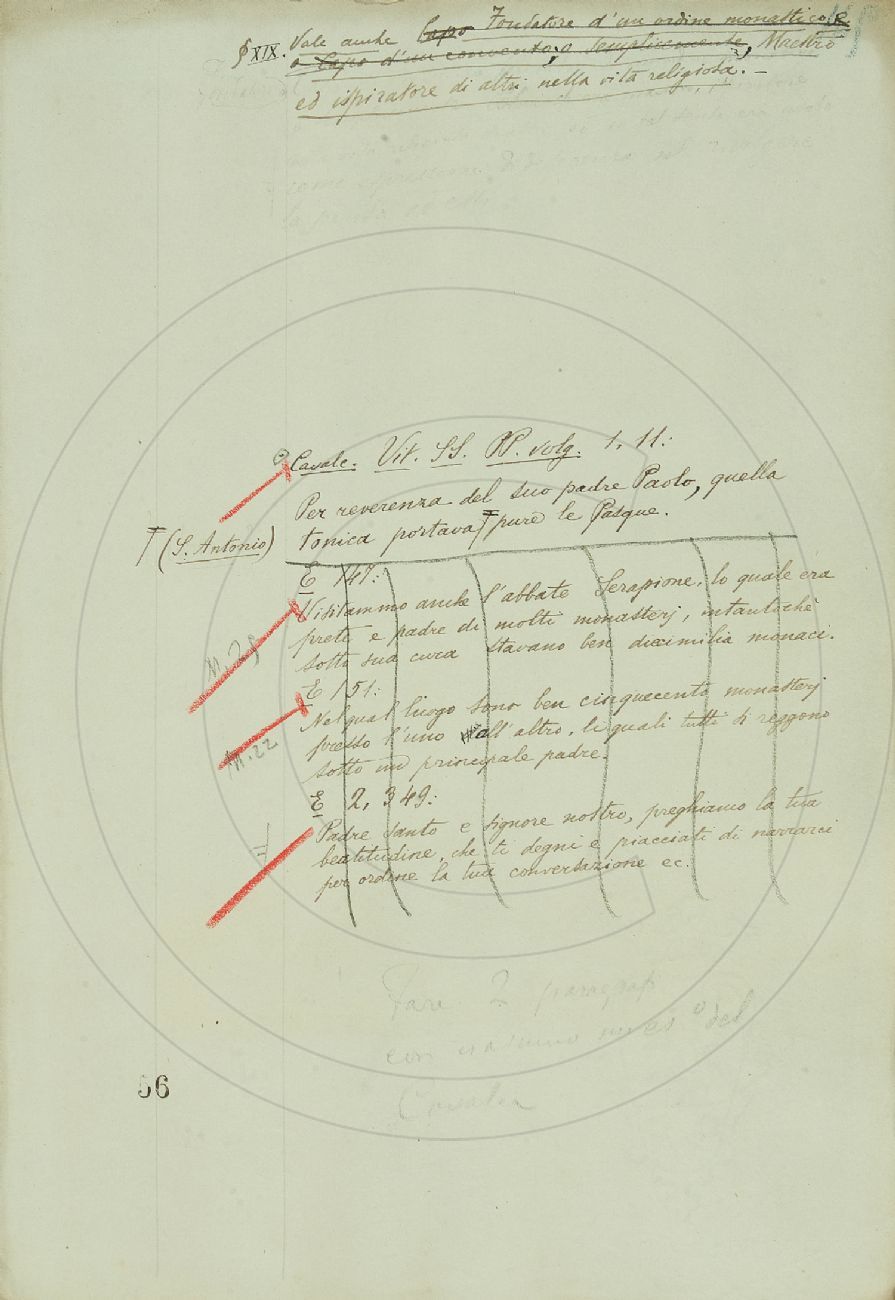 § XIX. Vale anche Capo Fondatore d'un ordine monastico, e
o Capo d'un convento; o semplicemente, Maestro
ed ispiratore di altri nella vita religiosa. –
Cavalc. Vit. SS. PP. volg. 1, 11:
Per reverenza del suo padre Paolo, quella
tonica portava pure le Pasque.
(S. Antonio)
E 147:
Visitammo anche l'abbate Serapione, lo quale era
prete e padre di molti monasterj, intantochè
sotto sua cura stavano ben diecimilia monaci.
M. 28
E 151:
Nel qual luogo sono ben cinquecento monasterj
presso l'uno all'altro, li quali tutti si reggono
sotto un principale padre.
M. 22
E 2, 349:
Padre santo e signore nostro, preghiamo la tua
beatitudine, che ti degni e piacciati di narrarci
per ordine la tua conversazione ec.
Fare 2 paragrafi
con
del
Cavalca
56